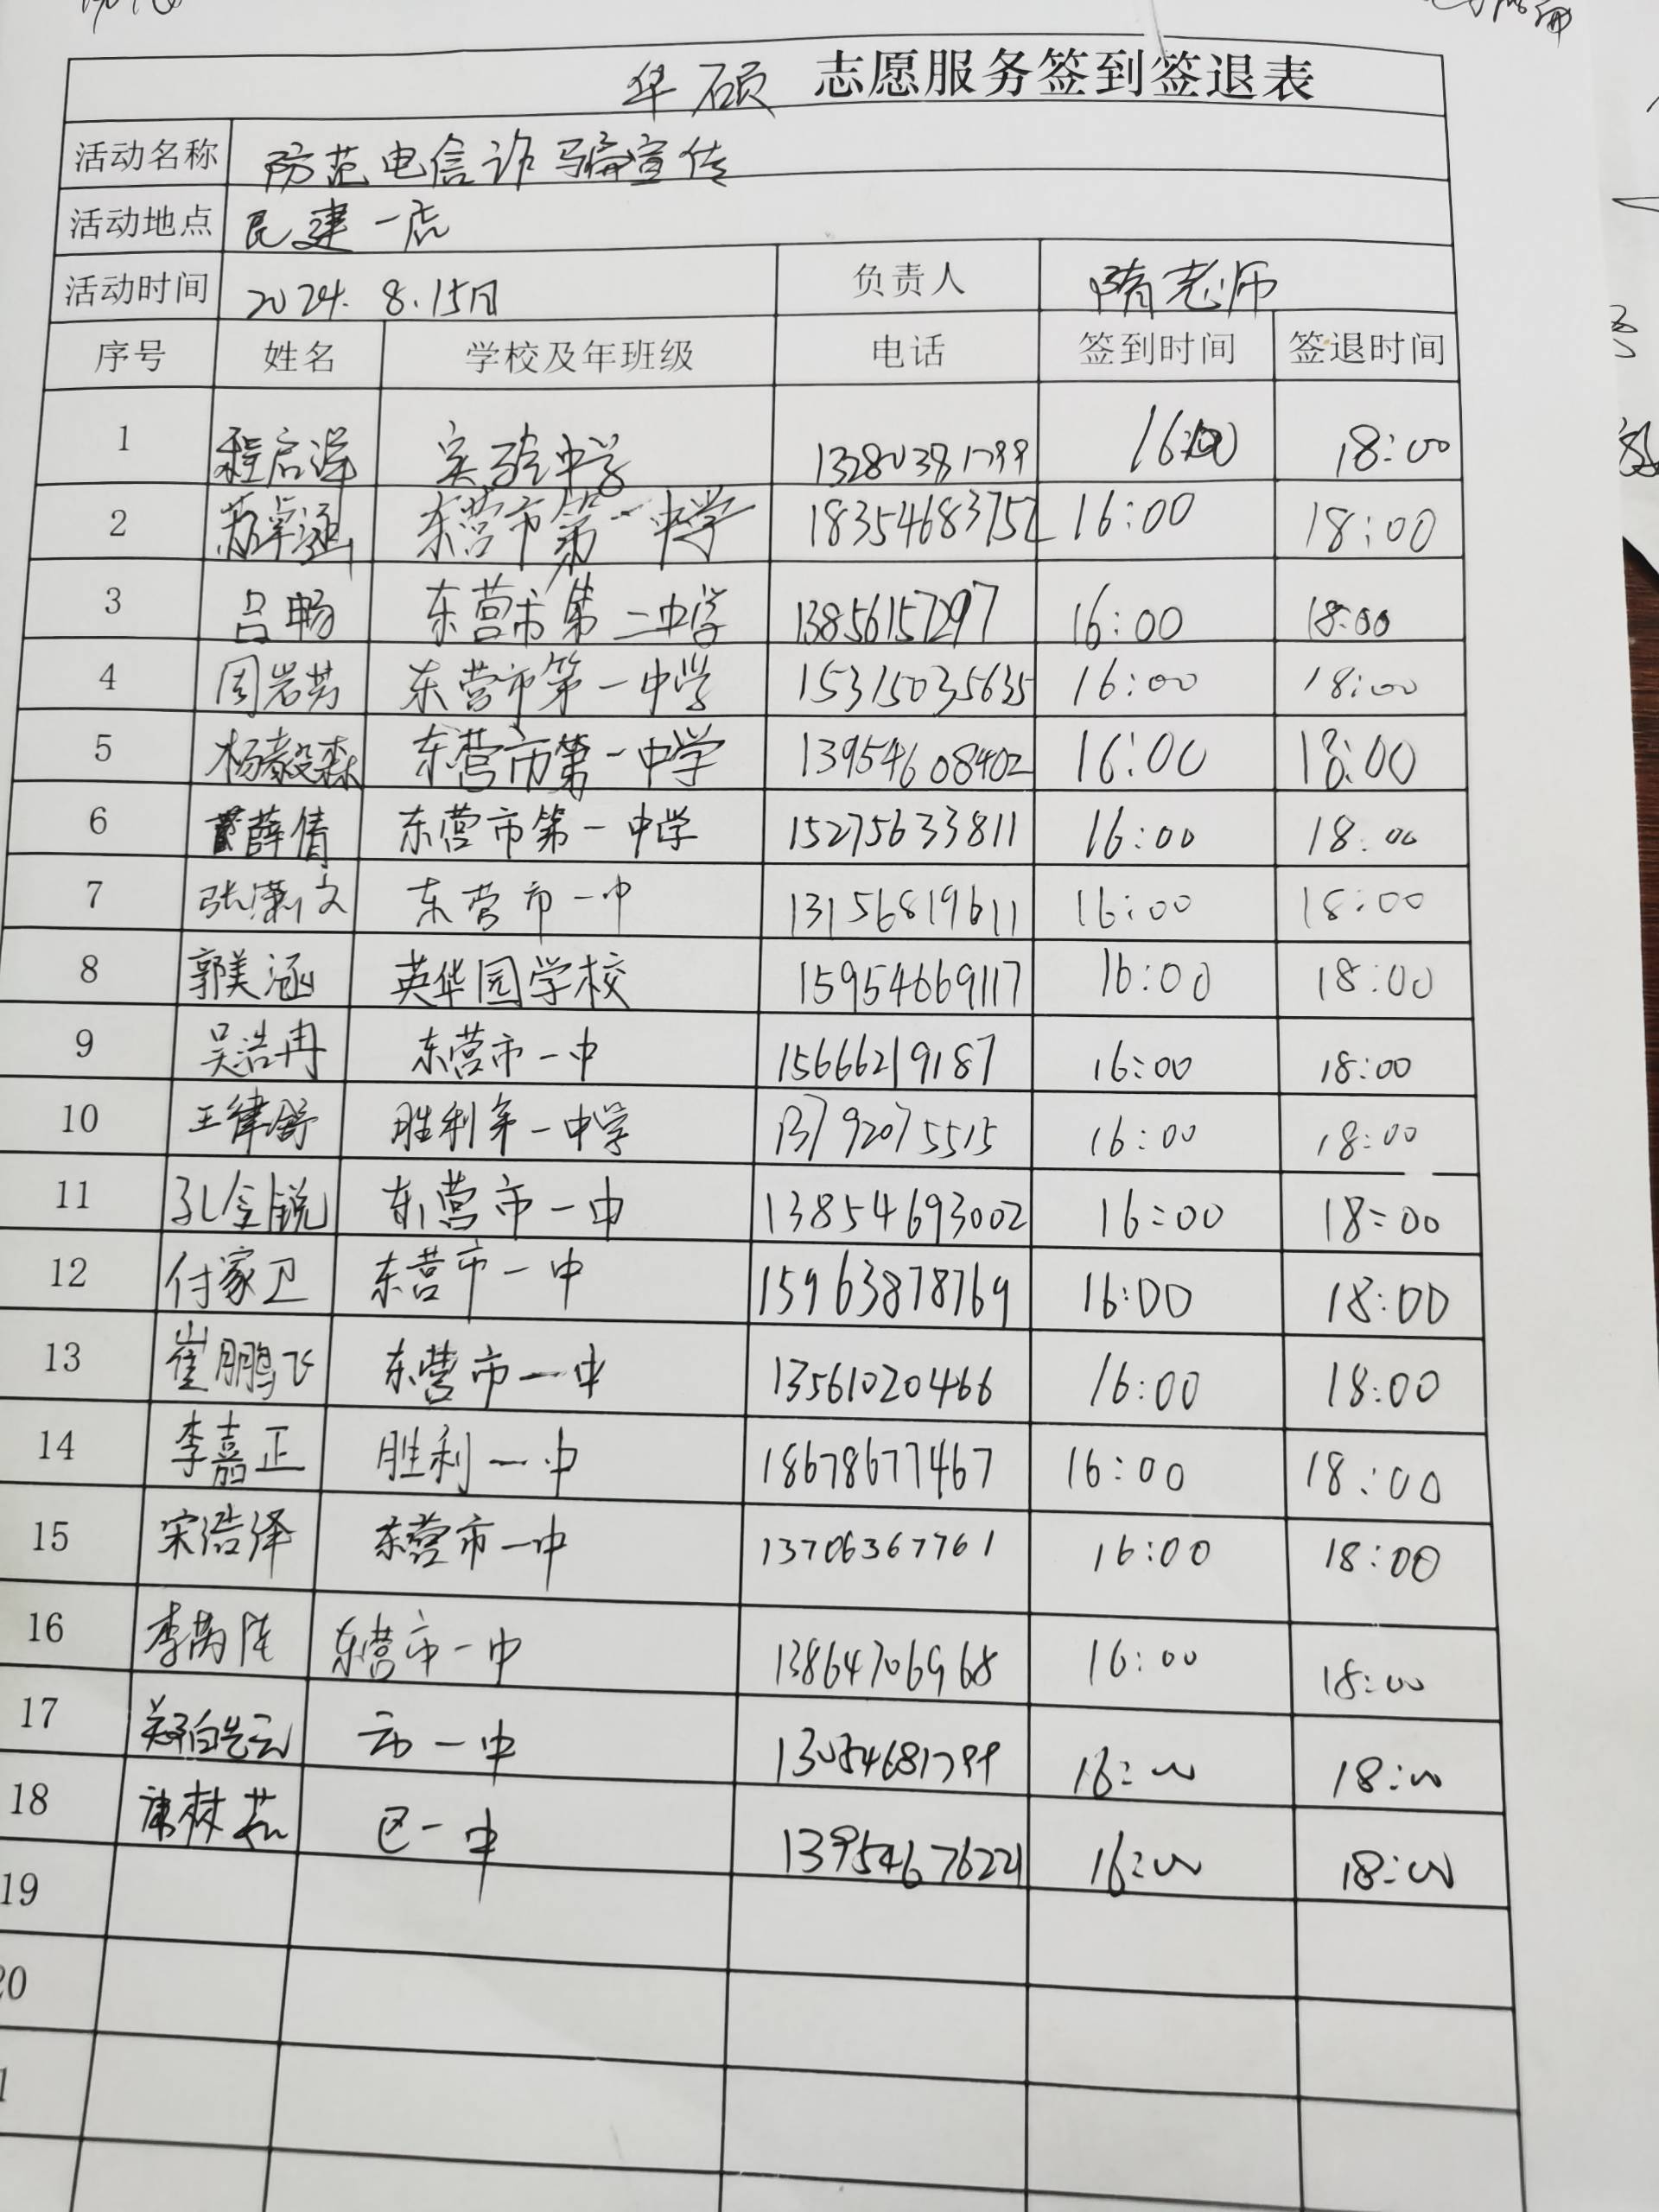 华硕 志愿服务签到签退表
活动名称 防范电信诈骗宣传
活动地点 民建一店
活动时间 2024. 8.15日 负责人 隋老师
序号 姓名 学校及年班级 电话 签到时间 签退时间
1 程启洋 实验中学 13280381799 16:00 18:00
2 苏卓涵 东营市第一中学 18354683752 16:00 18:00
3 吕畅 东营市第二中学 13856157297 16:00 18:00
4 周岩芳 东营市第一中学 15315035635 16:00 18:00
5 杨毅森 东营市第一中学 13954608402 16:00 18:00
6 薛倩 东营市第一中学 15275633811 16:00 18:00
7 张潇文 东营市一中 13156819611 16:00 18:00
8 郭美涵 英华园学校 15954669117 16:00 18:00
9 吴浩冉 东营市一中 15666219187 16:00 18:00
10 王律舒 胜利第一中学 13792075515 16:00 18:00
11 孔金锐 东营市一中 13854693002 16:00 18:00
12 付家卫 东营市一中 15963878769 16:00 18:00
13 崔鹏飞 东营市一中 13561020466 16:00 18:00
14 李嘉正 胜利一中 18678677467 16:00 18:00
15 宋浩泽 东营市一中 13706367761 16:00 18:00
16 东营市一中 13864706968 16:00 18:00
17 市一中 13054681799 16:00 18:00
18 区一中 13954676221 16:00 18:00
19
20